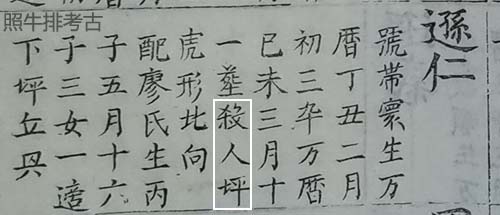 照牛排考古
遜仁
號帶寰生万
曆丁丑二月
初三卒万曆
己未三月十
一塟殺人坪
虎形北向
配廖氏生丙
子五月十六
子三女一適
下坪丘